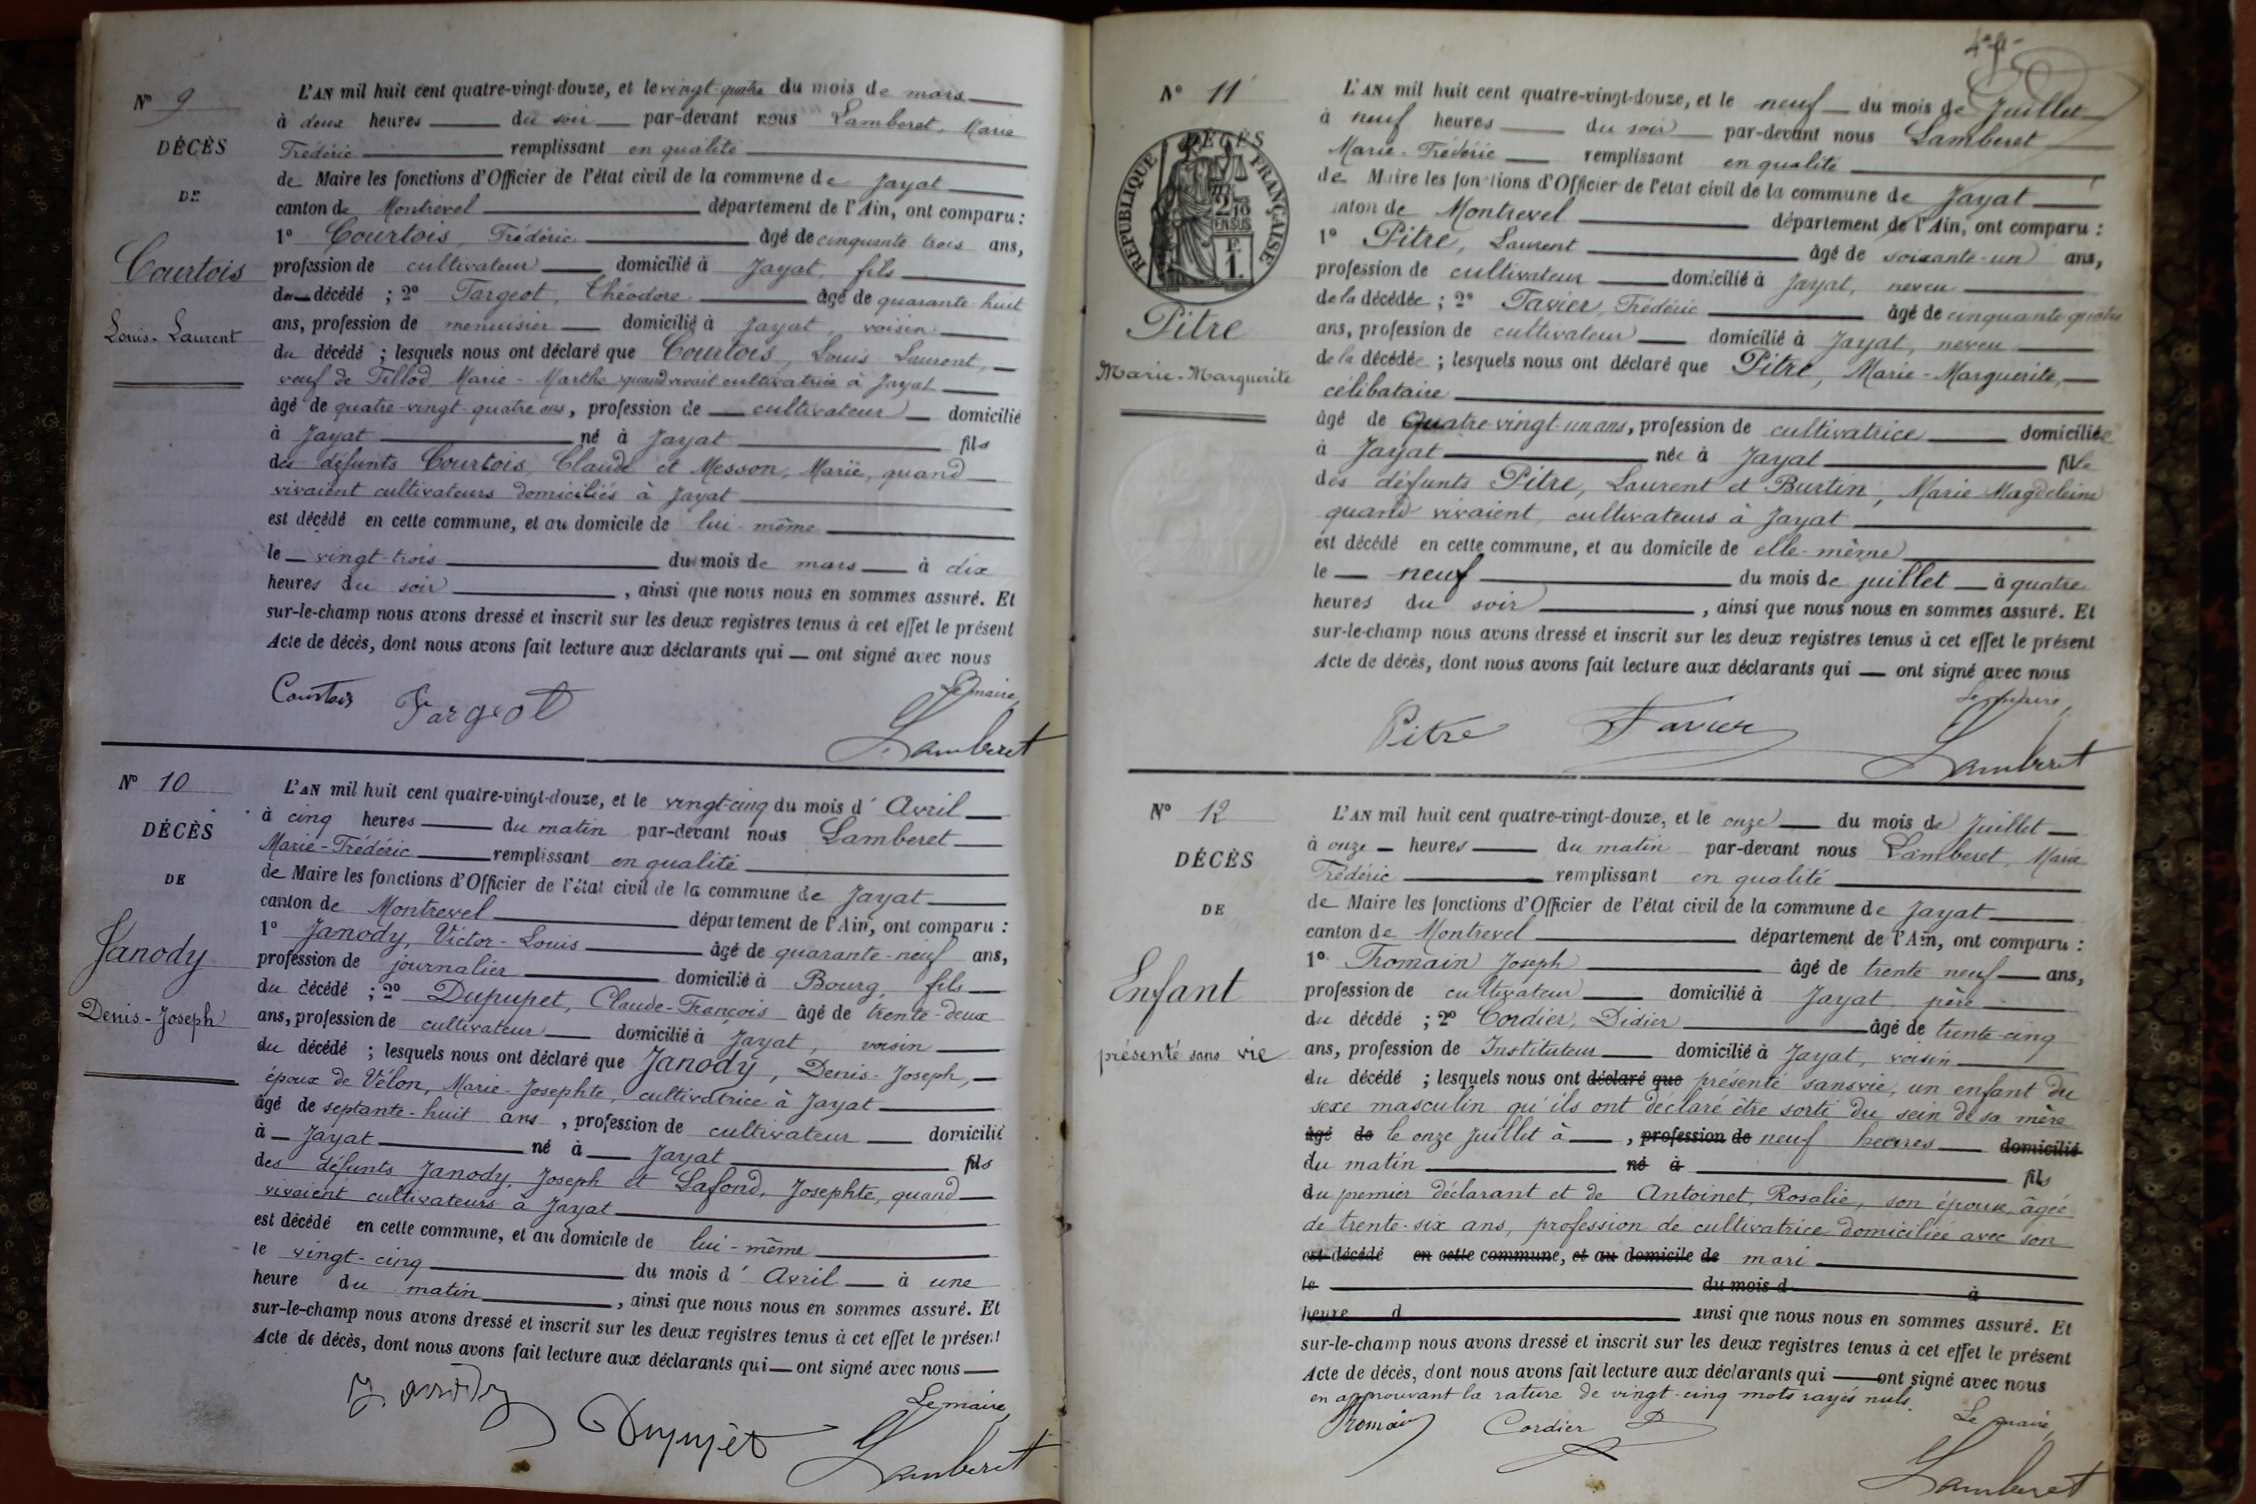 Nº 9
DÉCÈS
DE
Courtois
Louis-Laurent
L'AN mil huit cent quatre-vingt-douze, et le vingt-quatre du mois de mars
à deux heures du soir par-devant nous Lamberet, Marie
Frédéric remplissant en qualité
de Maire les fonctions d'Officier de l'état civil de la commune de Jayat
canton de Montrevel département de l'Ain, ont comparu :
1º Courtois, Frédéric âgé de cinquante trois ans,
profession de cultivateur domicilié à Jayat, fils
du décédé ; 2º Fargeot, Théodore âgé de quarante-huit
ans, profession de menuisier domicilié à Jayat, voisin
du décédé ; lesquels nous ont déclaré que Courtois, Louis Laurent,
veuf de Tillod Marie-Marthe quand vivait cultivatrice à Jayat
âgé de quatre-vingt-quatre ans, profession de cultivateur domicilié
à Jayat né à Jayat fils
des défunts Courtois, Claude et Messon, Marie, quand
vivaient cultivateurs domiciliés à Jayat
est décédé en cette commune, et au domicile de lui-même
le vingt-trois du mois de mars à dix
heures du soir, ainsi que nous nous en sommes assuré. Et
sur-le-champ nous avons dressé et inscrit sur les deux registres tenus à cet effet le présent
Acte de décès, dont nous avons fait lecture aux déclarants qui ont signé avec nous
Le maire,
Courtois Fargeot Lamberet
Nº 10
DÉCÈS
DE
Janody
Denis-Joseph
L'AN mil huit cent quatre-vingt-douze, et le vingt-cinq du mois d'Avril
à cinq heures du matin par-devant nous Lamberet
Marie-Frédéric remplissant en qualité
de Maire les fonctions d'Officier de l'état civil de la commune de Jayat
canton de Montrevel département de l'Ain, ont comparu :
1º Janody, Victor-Louis âgé de quarante-neuf ans,
profession de journalier domicilié à Bourg, fils
du décédé ; 2º Dupupet, Claude-François âgé de trente-deux
ans, profession de cultivateur domicilié à Jayat, voisin
du décédé ; lesquels nous ont déclaré que Janody, Denis-Joseph,
époux de Vélon, Marie-Josephte, cultivatrice à Jayat
âgé de septante-huit ans, profession de cultivateur domicilié
à Jayat né à Jayat fils
des défunts Janody, Joseph et Lafond, Josephte, quand
vivaient cultivateurs à Jayat
est décédé en cette commune, et au domicile de lui-même
le vingt-cinq du mois d'Avril à une
heure du matin, ainsi que nous nous en sommes assuré. Et
sur-le-champ nous avons dressé et inscrit sur les deux registres tenus à cet effet le présent
Acte de décès, dont nous avons fait lecture aux déclarants qui ont signé avec nous
Le maire,
Janody Dupupet Lamberet
Nº 11
DÉCÈS
RÉPUBLIQUE FRANÇAISE
2/10
EN SUS
F.
1.
Pitre
Marie-Marguerite
L'AN mil huit cent quatre-vingt-douze, et le neuf du mois de Juillet
à neuf heures du soir par-devant nous Lamberet
Marie-Frédéric remplissant en qualité
de Maire les fonctions d'Officier de l'état civil de la commune de Jayat
canton de Montrevel département de l'Ain, ont comparu :
1º Pitre, Laurent âgé de soixante-un ans,
profession de cultivateur domicilié à Jayat, neveu
de la décédée ; 2º Favier, Frédéric âgé de cinquante quatre
ans, profession de cultivateur domicilié à Jayat, neveu
de la décédée ; lesquels nous ont déclaré que Pitre, Marie-Marguerite,
célibataire
âgé de quatre-vingt-un ans, profession de cultivatrice domiciliée
à Jayat née à Jayat fille
des défunts Pitre, Laurent et Burtin, Marie Magdeleine
quand vivaient cultivateurs à Jayat
est décédé en cette commune, et au domicile de elle-même
le neuf du mois de juillet à quatre
heures du soir, ainsi que nous nous en sommes assuré. Et
sur-le-champ nous avons dressé et inscrit sur les deux registres tenus à cet effet le présent
Acte de décès, dont nous avons fait lecture aux déclarants qui ont signé avec nous
Le maire,
Pitre Favier Lamberet
Nº 12
DÉCÈS
DE
Enfant
présenté sans vie
L'AN mil huit cent quatre-vingt-douze, et le onze du mois de Juillet
à onze heures du matin par-devant nous Lamberet, Marie
Frédéric remplissant en qualité
de Maire les fonctions d'Officier de l'état civil de la commune de Jayat
canton de Montrevel département de l'Ain, ont comparu :
1º Fromain Joseph âgé de trente neuf ans,
profession de cultivateur domicilié à Jayat père
du décédé ; 2º Cordier, Didier âgé de trente-cinq
ans, profession de Instituteur domicilié à Jayat, voisin
du décédé ; lesquels nous ont déclaré que présenté sans vie, un enfant du
sexe masculin qu'ils ont déclaré être sorti du sein de sa mère
âgé de le onze Juillet à, profession de neuf heures domicilié
du matin né à fils
du premier déclarant et de Antoinet, Rosalie, son épouse âgée
de trente-six ans, profession de cultivatrice domiciliée avec son
est décédé en cette commune, et au domicile de mari
le du mois d à
heure d ainsi que nous nous en sommes assuré. Et
sur-le-champ nous avons dressé et inscrit sur les deux registres tenus à cet effet le présent
Acte de décès, dont nous avons fait lecture aux déclarants qui ont signé avec nous
en approuvant la rature de vingt-cinq mots rayés nuls.
Le maire,
Fromain Cordier D Lamberet